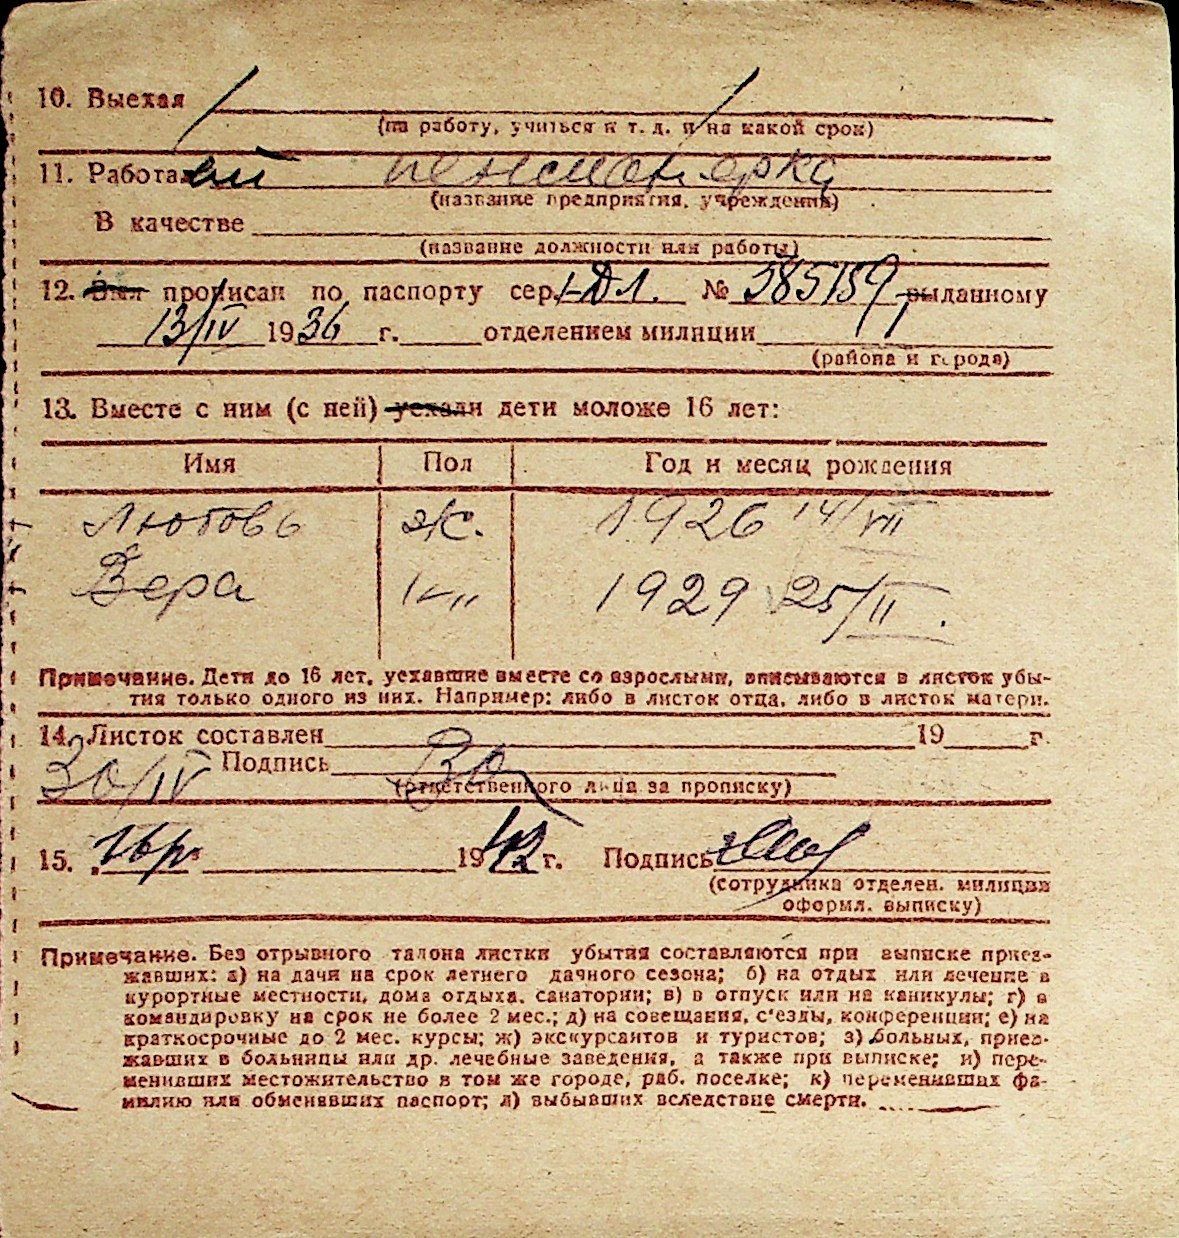 10. Выехал
(на работу, учиться и т. д. и на какой срок)
11. Работа пенсионерка
(название предприятия, учреждения)
В качестве
(название должности или работы)
12. Был прописан по паспорту сер. I-ДЛ. № 585159, выданному
13/IV 1936 г. отделением милиции
(района и города)
13. Вместе с ним (с ней) уехали дети моложе 16 лет:
Имя Пол Год и месяц рождения
Любовь ж. 1926 14/VII
Вера -"- 1929 25/II.
Примечание. Дети до 16 лет, уехавшие вместе со взрослыми, вписываются в листок убы-
тия только одного из них. Например: либо в листок отца, либо в листок матери.
14. Листок составлен 19 г.
30/IV Подпись
(ответственного лица за прописку)
15. 1942 г. Подпись
(сотрудника отделен. милиции
оформл. выписку)
Примечание. Без отрывного талона листки убытия составляются при выписке приез-
жавших: а) на дачи на срок летнего дачного сезона; б) на отдых или лечение в
курортные местности, дома отдыха, санатории; в) в отпуск или на каникулы; г) в
командировку на срок не более 2 мес.; д) на совещания, с'езды, конференции; е) на
краткосрочные до 2 мес. курсы; ж) экскурсантов и туристов; з) больных, приез-
жавших в больницы или др. лечебные заведения, а также при выписке; и) пере-
менивших местожительство в том же городе, раб. поселке; к) переменивших фа-
милию или обменявших паспорт; л) выбывших вследствие смерти.